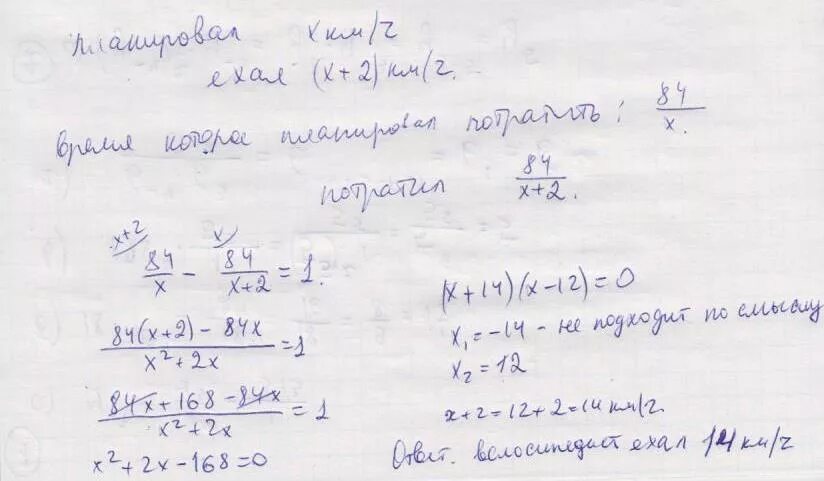 планировал x км/ч
ехал (x+2) км/ч.
время которое планировал потратить: 84/x.
потратил 84/(x+2).
x+2 x
84/x - 84/(x+2) = 1.
(84(x+2) - 84x)/(x²+2x) = 1
(84x+168-84x)/(x²+2x) = 1
x²+2x-168=0
(x+14)(x-12)=0
x₁=-14 - не подходит по смыслу
x₂=12
x+2=12+2=14 км/ч.
Ответ. велосипедист ехал 14 км/ч